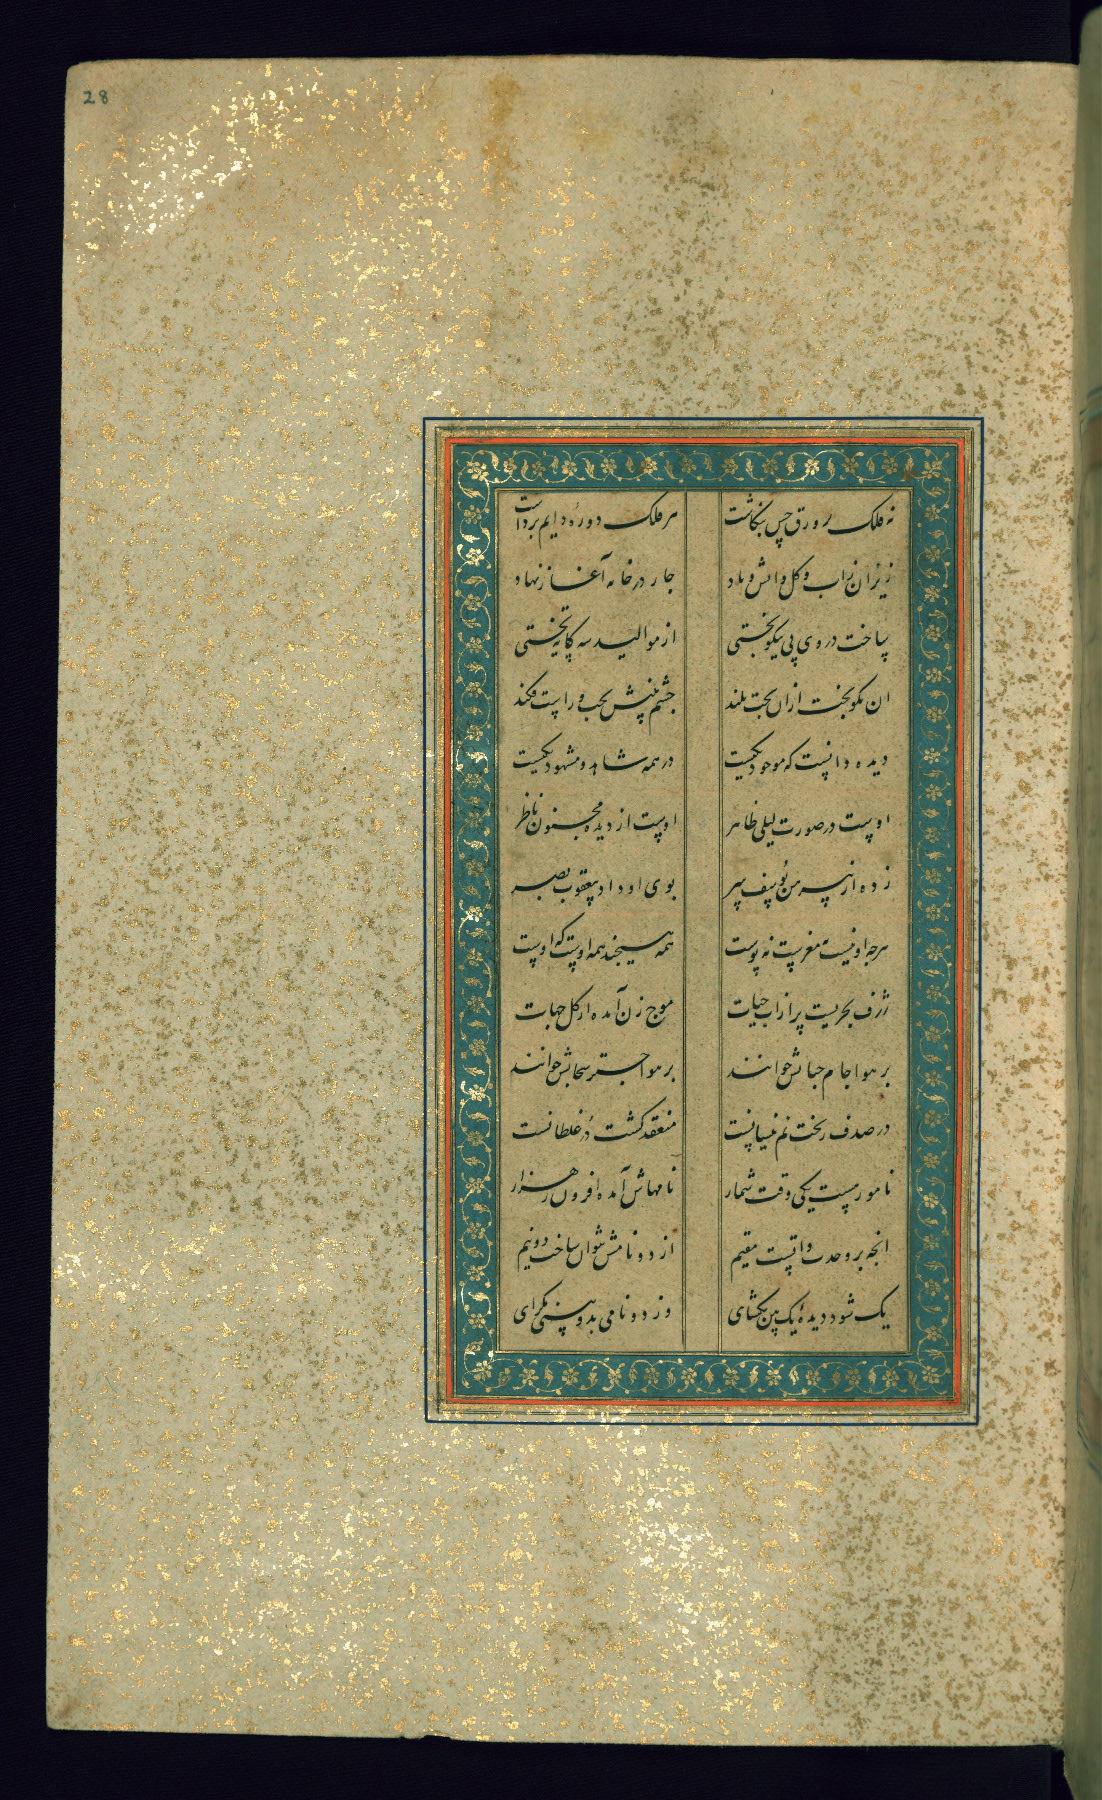 28
نه فلک ورق چس بنکاشت
هر فلک دوره دایم برداشت
زیر ان زاب و کل واتش و باد
چار در خانه آغاز نهاد
ساخت در وی پی نیکو بختی
از موالید سه کانه تختی
ان نکو بخت ازان تخت بلند
چشم بینش بچپ و راست فکند
دیده دانست که موجود یکیست
در همه شاهد و مشهود یکیست
اوست در صورت لیلی ظاهر
اوست از دیده مجنون ناظر
زده از پیرهن یوسف سر
بوی او داد بیعقوب بصر
هرچه او نیست نه مغزست نه پوست
همه هیچند همه اوست که اوست
ژرف بحریست پر از اب حیات
موج زن آمده از کل جهات
بر هوا جام حبابش خوانند
بر هوا چتر سحابش خوانند
در صدف ریخت نم نیسانست
منعقد کشت در غلطانست
نامورست یکی وقت شمار
نامهاش آمده افزون ز هزار
انچه بر وحدت ذاتست مقیم
از دو نامش نتوان ساخت دو نیم
یک شود دیده یک بین بکشای
وز دو نامی بدو بینی مکرای